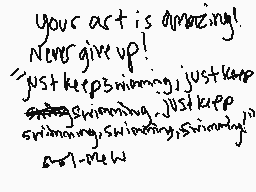 your art is amazing!
Never give up!
"just keep swimming, just keep
swimming. just keep
swimming, swimming, swimming!"
-mew